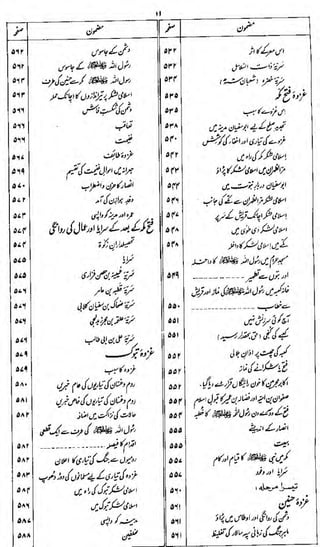 ۱۱
مضمون
صفحہ
اس معرکے کا اثر
۵۳۲
سریۂ ذات السلاسل
۵۳۲
سریۂ خضرہ (شعبان ۸ھ)
۵۳۴
غزوۂ فتح مکہ
۵۳۵
اس غزوے کا سبب
۵۳۵
تجدید صلح کے لیے ابوسفیان مدینہ میں
۵۳۸
غزوے کی تیاری اور اخفاء کی کوشش
۵۴۰
اسلامی لشکر مکہ کی راہ میں
۵۴۲
مرالظہران میں اسلامی لشکر کا پڑاؤ
۵۴۳
ابوسفیان دربار نبوت میں
۵۴۴
اسلامی لشکر مرالظہران سے مکے کی جانب
۵۴۶
اسلامی لشکر اچانک قریش کے سر پر
۵۴۷
اسلامی لشکر ذی طویٰ میں
۵۴۸
مکے میں اسلامی لشکر کا داخلہ
۵۴۸
مسجد حرام میں رسول اللہ ﷺ کا داخلہ
اور بتوں سے تطہیر
۵۴۹
خانہ کعبہ میں رسول اللہ ﷺ کی نماز اور قریش
سے خطاب
۵۵۰
آج کوئی سرزنش نہیں
۵۵۱
کعبے کی کنجی (حق بحقدار رسید)
۵۵۱
کعبہ کی چھت پر اذان بلالی
۵۵۲
فتح یا شکرانے کی نماز
۵۵۲
اکابر مجرمین کا خون رائیگاں قرار دے دیا گیا
۵۵۲
صفوان بن امیہ اور فضالہ بن عمیر کا قبول اسلام
۵۵۳
فتح کے دوسرے دن رسول اللہ ﷺ کا خطبہ
۵۵۴
انصار کے اندیشے
۵۵۵
بیعت
۵۵۵
مکہ میں نبی ﷺ کا قیام اور کام
۵۵۷
سرایا اور وفود
۵۵۷
تیسرا مرحلہ
۵۶۰
غزوۂ حنین
۵۶۱
دشمن کی روانگی اور اوطاس میں پڑاؤ
۵۶۱
ماہر جنگ کی زبانی سپہ سالار کی تغلیط
۵۶۱
مضمون
صفحہ
دشمن کے جاسوس
۵۶۲
رسول اللہ ﷺ کے جاسوس
۵۶۲
رسول اللہ ﷺ مکہ سے حنین کی طرف
۵۶۳
اسلامی لشکر پر تیر اندازوں کا اچانک حملہ
دشمن کی شکست فاش
۵۶۶
تعاقب
۵۶۶
غنیمت
غزوۂ طائف
۵۶۷
جعرانہ میں اموال غنیمت کی تقسیم
۵۶۹
انصار کا حزن و اضطراب
۵۷۰
وفد ہوازن کی آمد
۵۷۲
عمرہ اور مدینہ کو واپسی
۵۷۳
فتح مکہ کے بعد کے سرایا اور عمال کی روانگی
۵۷۴
تحصیلداران زکوٰۃ
۵۷۴
سرایا
۵۷۵
سریۂ عیینہ بن حصن فزاری
۵۷۵
سریۂ قطبہ بن عامر
۵۷۶
سریۂ ضحاک بن سفیان کلابی
۵۷۶
سریۂ علقمہ بن مجزز مدلجی
۵۷۶
سریۂ علی بن ابی طالب
۵۷۷
غزوۂ تبوک
۵۷۹
غزوہ کا سبب
۵۷۹
روم و غسان کی تیاریوں کی عام خبریں
۵۸۰
روم و غسان کی تیاریوں کی خاص خبریں
حالات کی نزاکت میں اضافہ
۵۸۲
رسول اللہ ﷺ کی طرف سے ایک قطعی
اقدام کا فیصلہ
رومیوں سے جنگ کی تیاری کا اعلان
۵۸۲
غزوہ کی تیاری کے لیے مسلمانوں کی دوڑ دھوپ
۵۸۳
اسلامی لشکر تبوک کی راہ میں
۵۸۴
اسلامی لشکر تبوک میں
۵۸۶
مدینہ کو واپسی
۵۸۷
مخلفین
۵۸۸